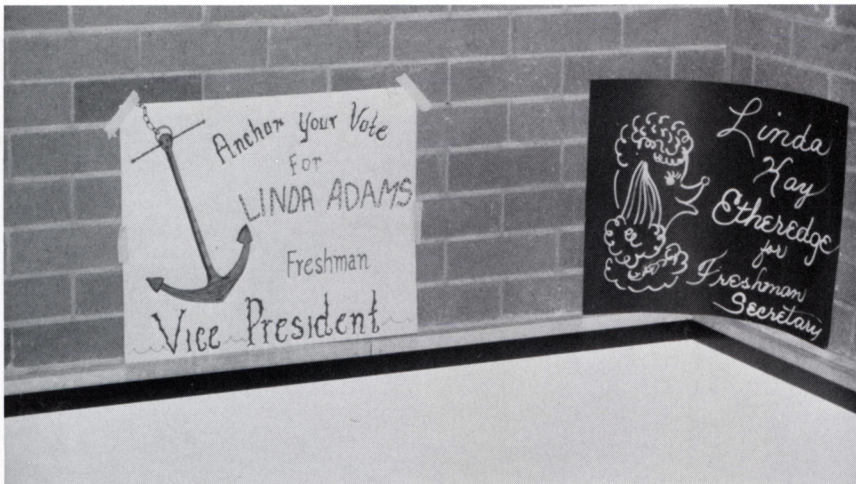 Anchor Your Vote
for
LINDA ADAMS
Freshman
Vice President
Linda
Kay
Etheredge
for
Freshman
Secretary